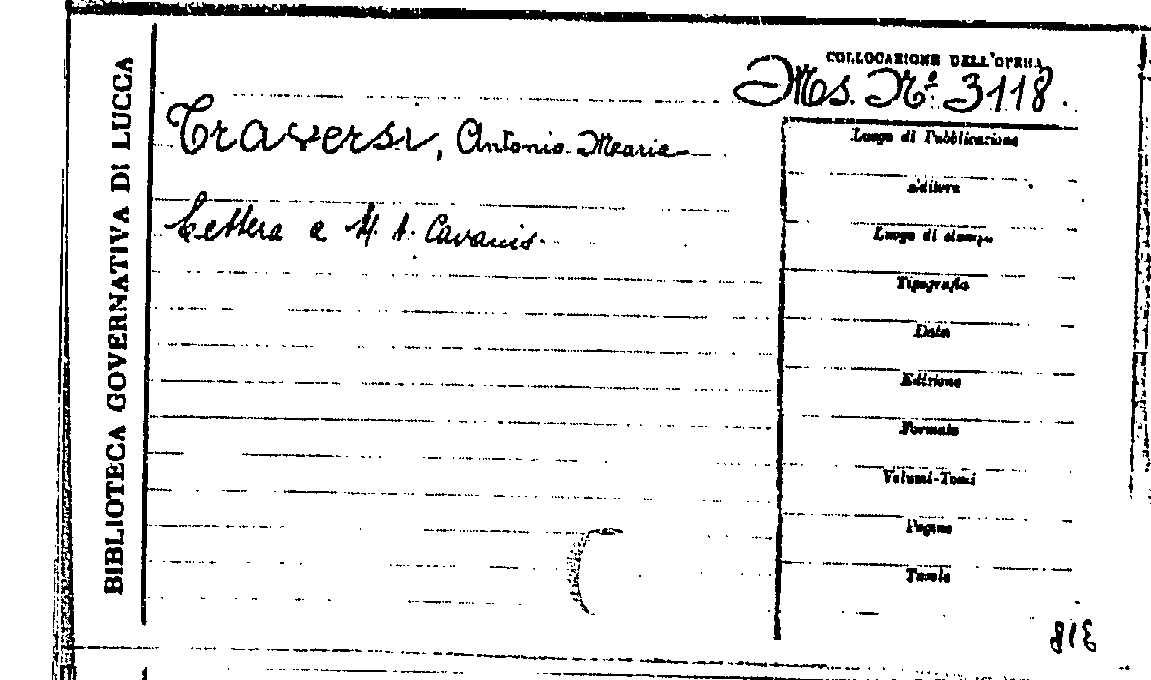 BIBLIOTECA GOVERNATIVA DI LUCCA
COLLOCAZIONE DELL'OPERA
Ms. Nº 3118.
Traversi, Antonio Maria
Lettera a M. A. Cavanis.
Luogo di Pubblicazione
Editore
Luogo di stampa
Tipografia
Data
Edizione
Formato
Volumi-Tomi
Pagine
Tavole